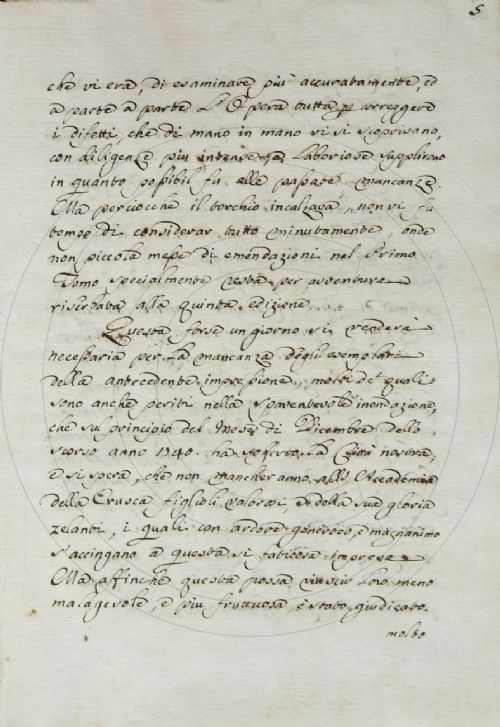 5
che vi era, di esaminare più accuratamente, ed
a parte a parte l'Opera tutta per correggere
i difetti, che di mano in mano vi si scoprivano,
con diligenze più intense, e laboriose supplirono
in quanto possibil fu alle passate mancanze.
Ma perciocchè il torchio incalzava, non vi fu
tempo di considerar tutto minutamente, onde
non piccola messe di emendazioni nel Primo
Tomo specialmente resta per avventura
riserbata alla quinta edizione.
Questa forse un giorno si renderà
necessaria per la mancanza degli esemplari
della antecedente impressione, molti de' quali
sono anche periti nella spaventevole inondazione,
che sul principio del Mese di Dicembre dello
scorso anno 1740. ha sofferto la Città nostra;
e si spera, che non mancheranno all'Accademia
della Crusca figlioli valorosi, e della sua gloria
zelanti, i quali con ardore generoso, e magnanimo
s'accingano a questa sì faticosa impresa.
Ma affinchè questa possa riuscir loro meno
malagevole, e più fruttuosa, è stato giudicato
molto